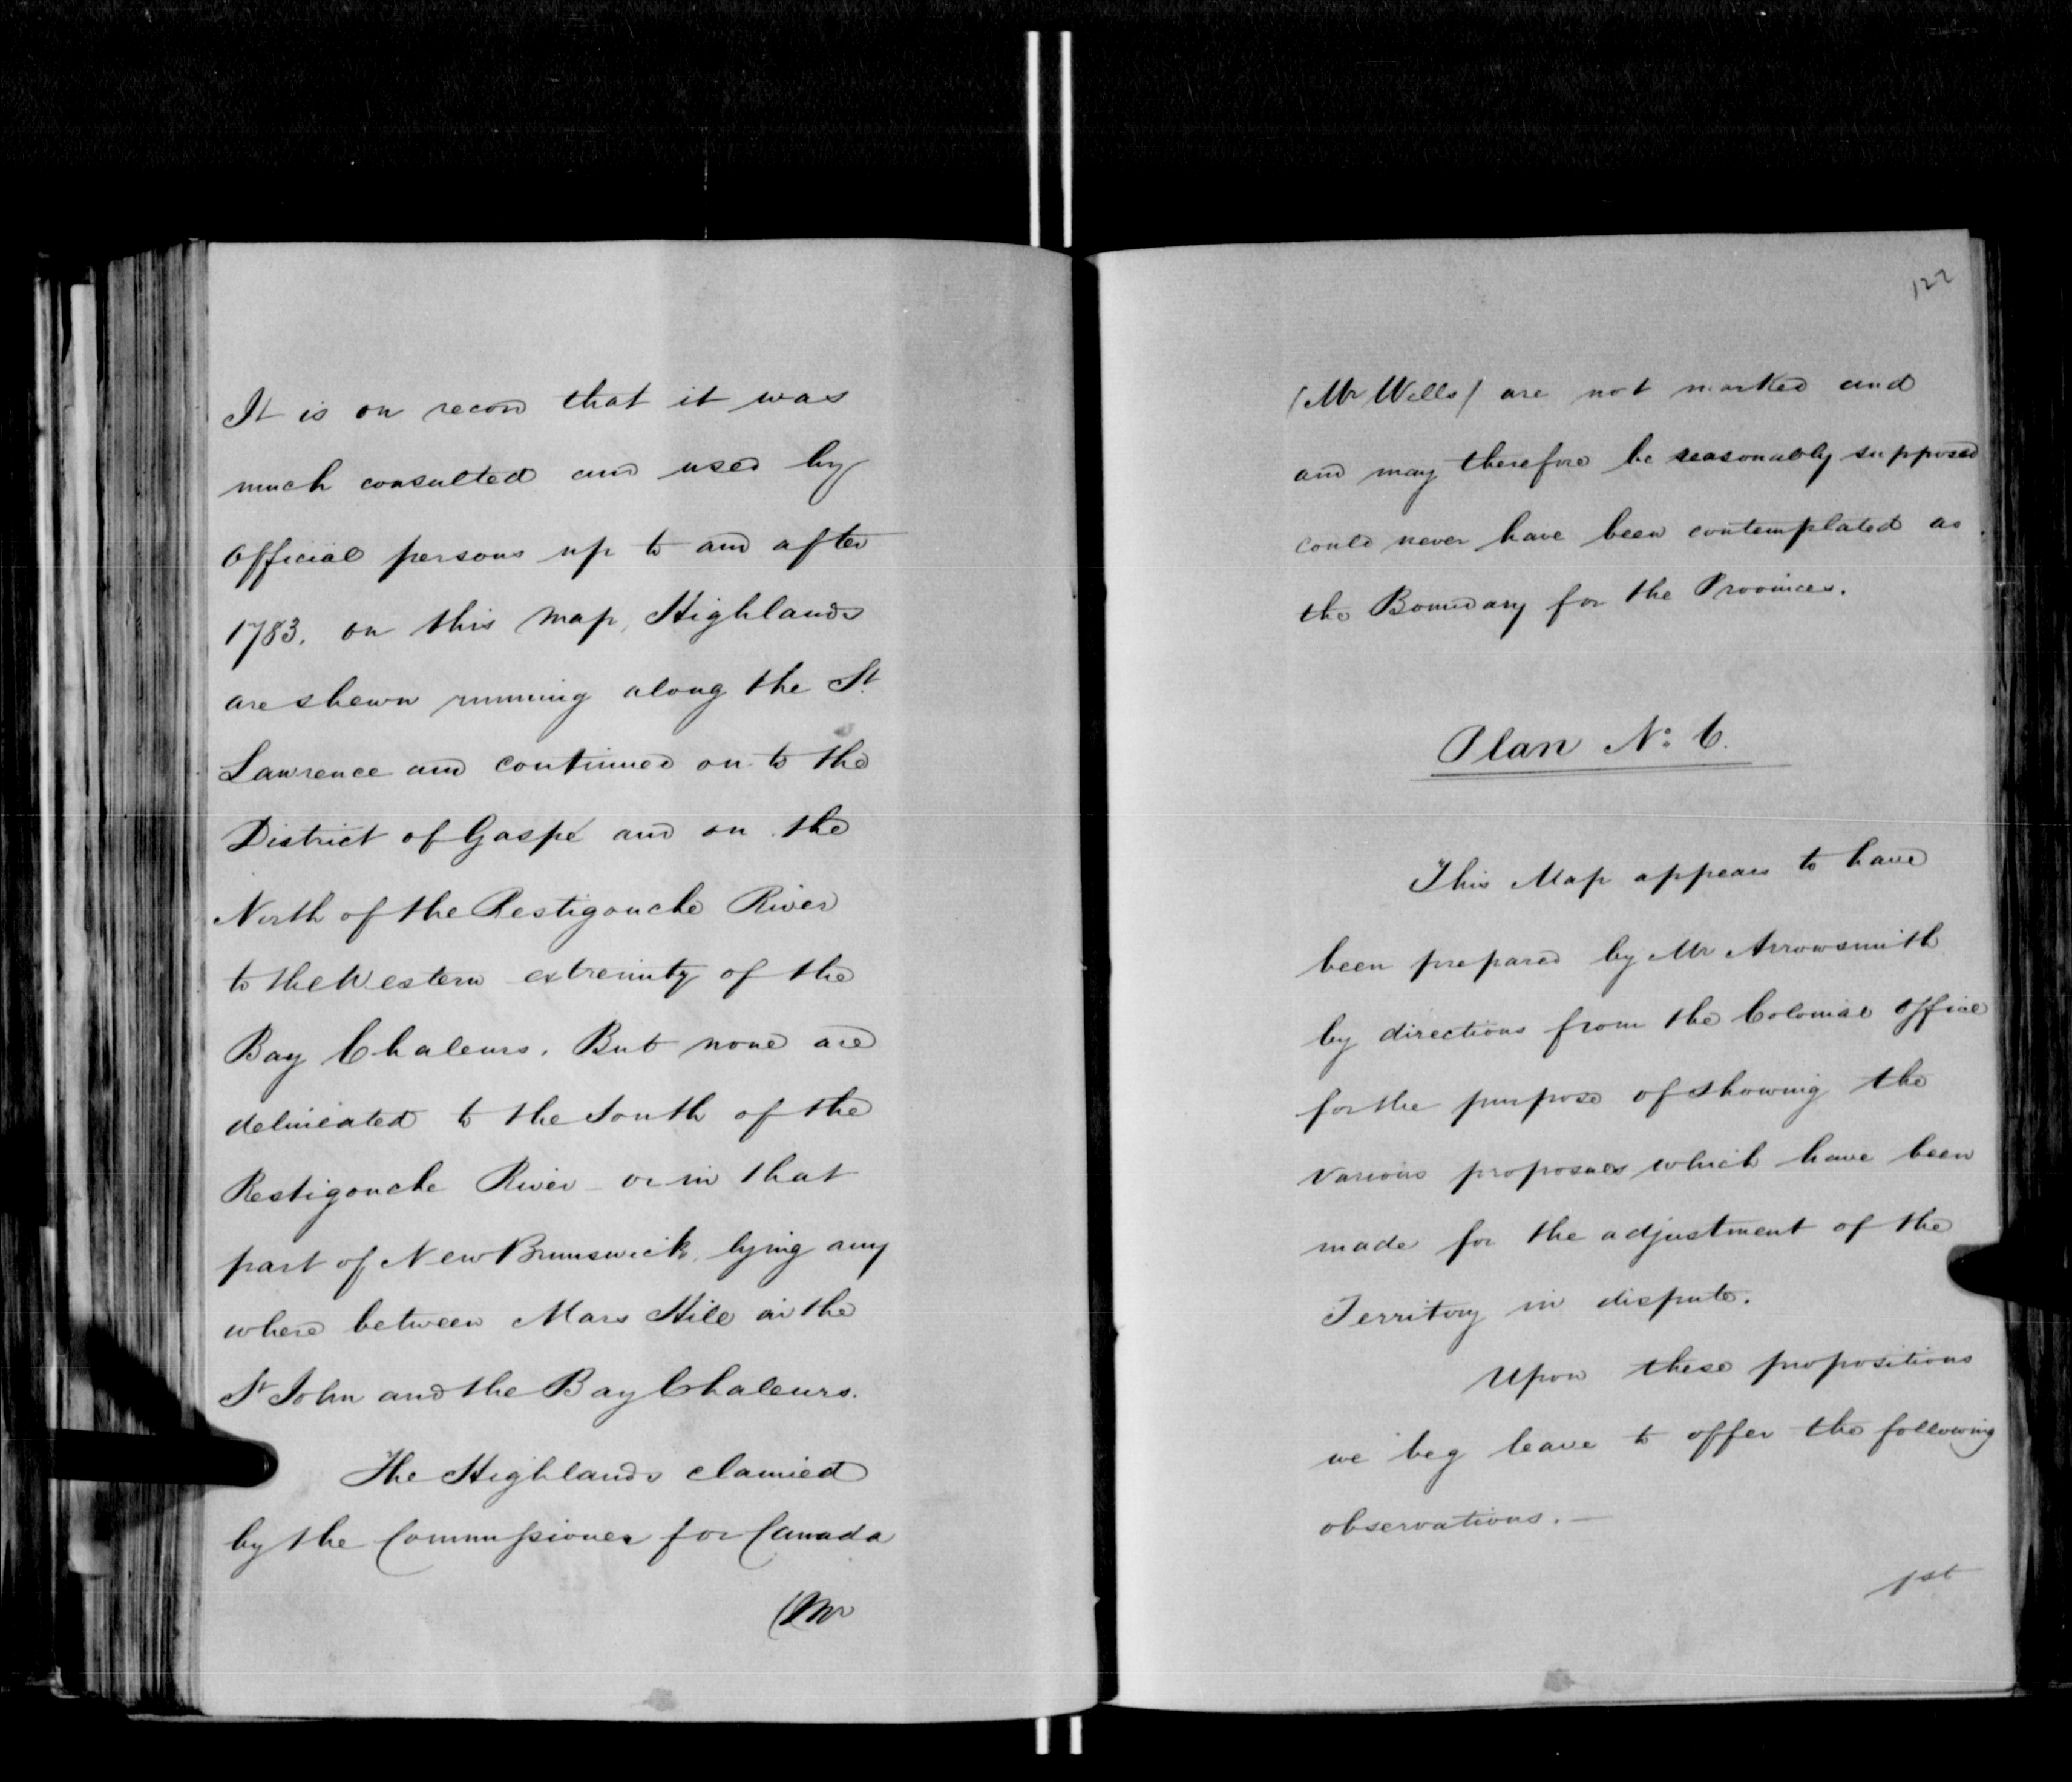 It is on record that it was
much consulted and used by
Official persons up to and after
1783. on this Map, Highlands
are shewn running along the St.
Lawrence and continued on to the
District of Gaspé and on the
North of the Restigouche River
to the Western extremity of the
Bay Chaleurs. But none are
delineated to the South of the
Restigouche River or in that
part of New Brunswick, lying any
where between Mars Hill on the
St John and the Bay Chaleurs.
The Highlands claimed
by the Commissioner for Canada
(Mr
122
(Mr Wells) are not marked and
and may therefore be reasonably supposed
could never have been contemplated as
the Boundary for the Provinces.
Plan No: 6.
This Map appears to have
been prepared by Mr Arrowsmith
by directions from the Colonial Office
for the purpose of showing the
various proposals which have been
made for the adjustment of the
Territory in dispute.
Upon these propositions
we beg leave to offer the following
observations. —
1st